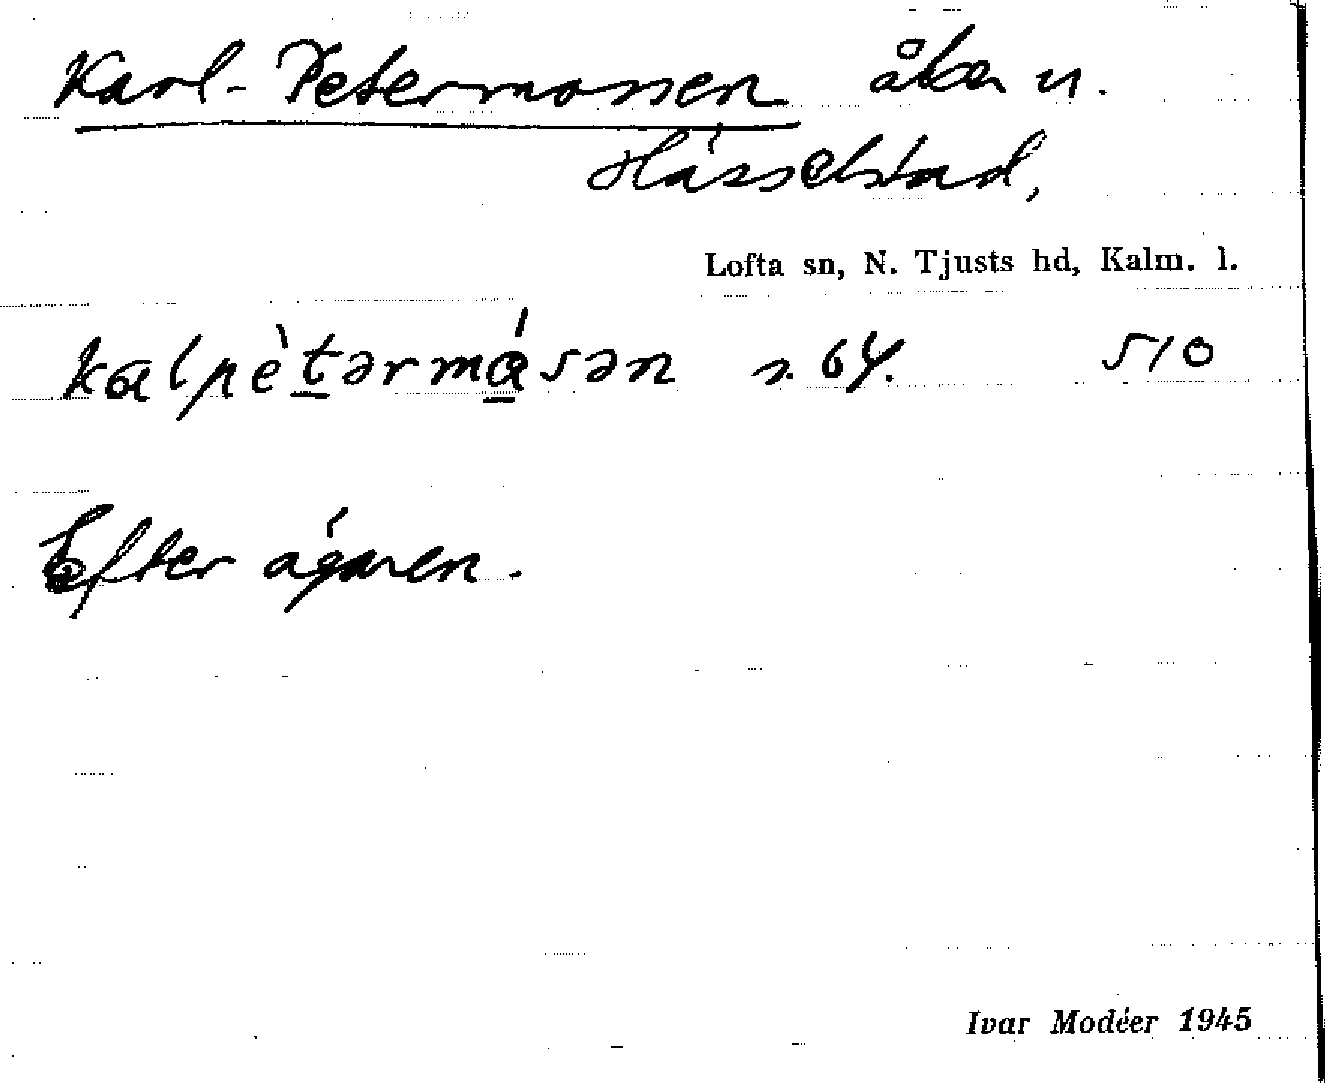 Karl-Petermossen åker u.
Hässelstad,
Lofta sn, N. Tjusts hd, Kalm. l.
kalpètərmɑ́sən s. 64. 510
Efter ägaren.
Ivar Modéer 1945